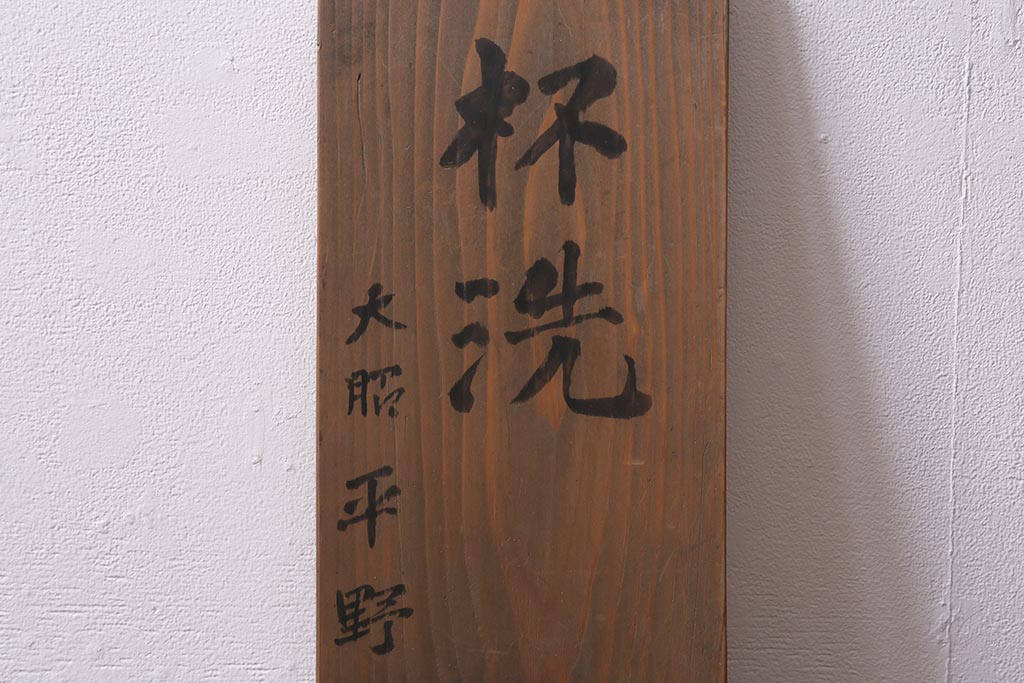 杯洗
大昭 平野